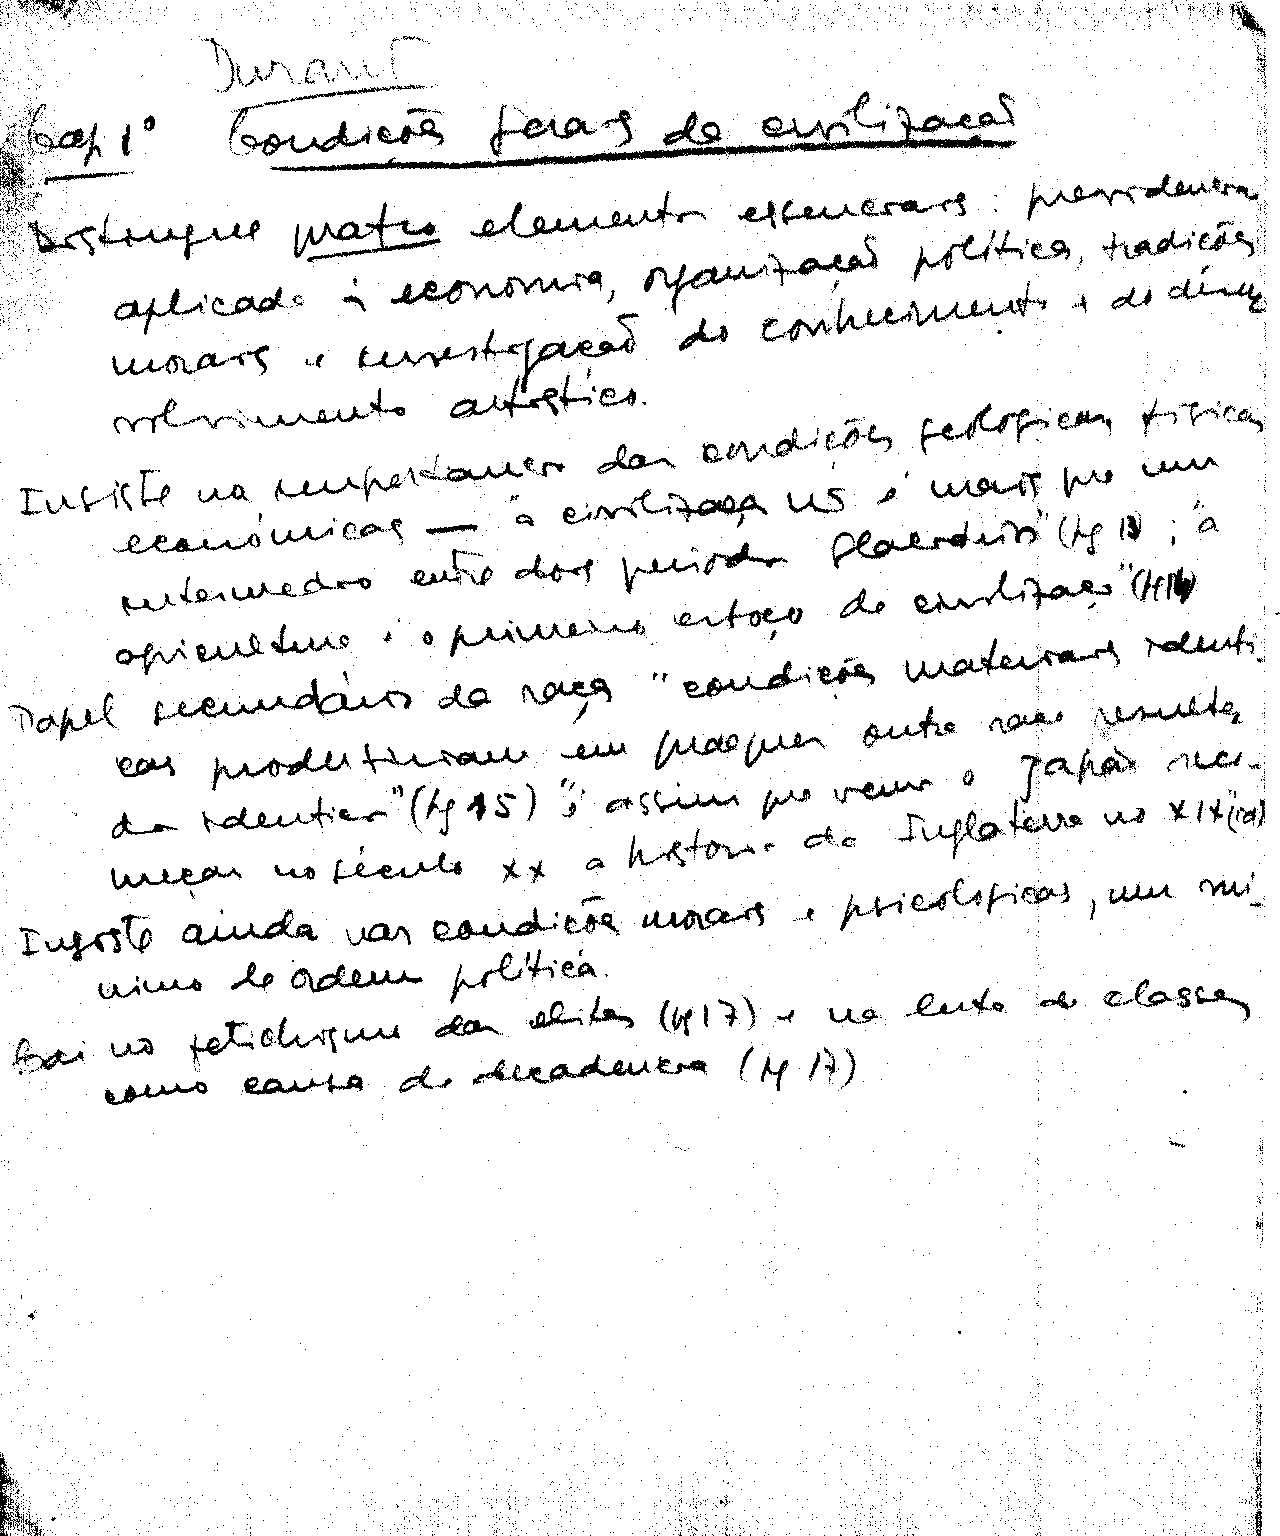 Durant
Cap 1º Condições gerais da civilização
Distingue quatro elementos essenciais: previdencia
aplicada à economia, organização política, tradições
morais e investigação do conhecimento e do desen
volvimento artístico.
Insiste na importancia das condições geologicas físicas
económicas — "a civilização não é mais que um
intermedio entre dois periodos glaciarios" (pg 13); "a
agricultura é o primeiro esboço de civilização" (pg 14)
Papel secundário da raça "condições materiais identi
cas produziriam em qualquer outra raça resulta
dos identicos" (pg 15) "é assim que vemos o Japão reco-
meçar no século XX a historia da Inglaterra no XIX" (id)
Insiste ainda nas condições morais e psicologicas, um mi
nimo de ordem política.
Cai no fetichismo das elites (pg 17) e na luta de classes
como causa de decadencia (pg 17)